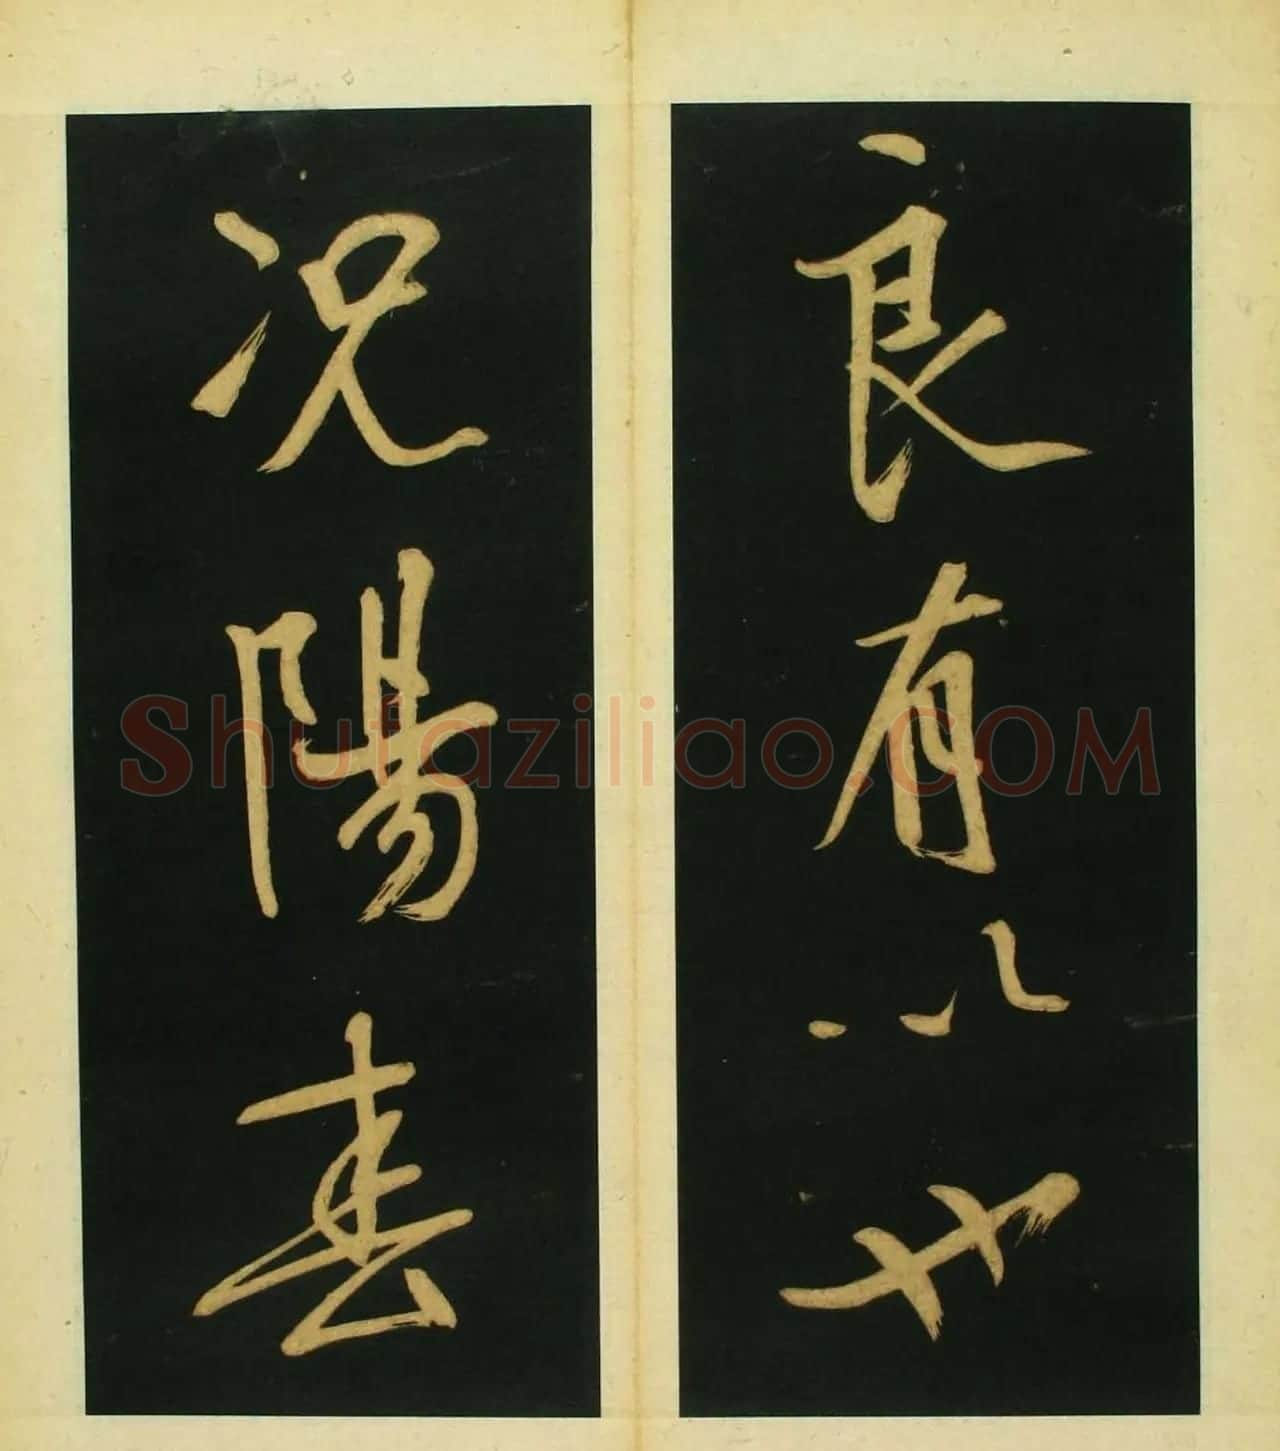 良有以也
况陽春
Shufaziliao.COM